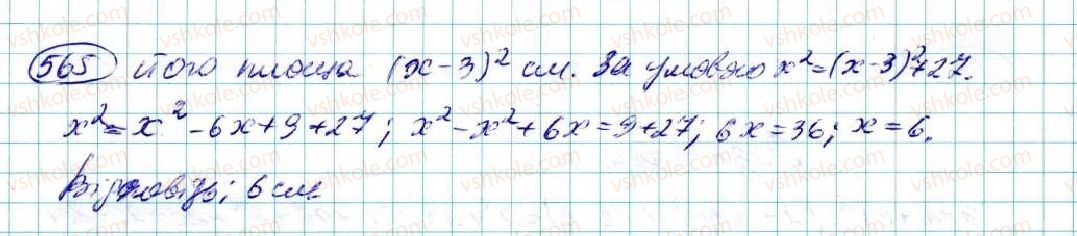 565 його площа (x-3)² см. За умовою x²=(x-3)²+27.
x²=x²-6x+9+27; x²-x²+6x=9+27; 6x=36; x=6.
Відповідь; 6 см